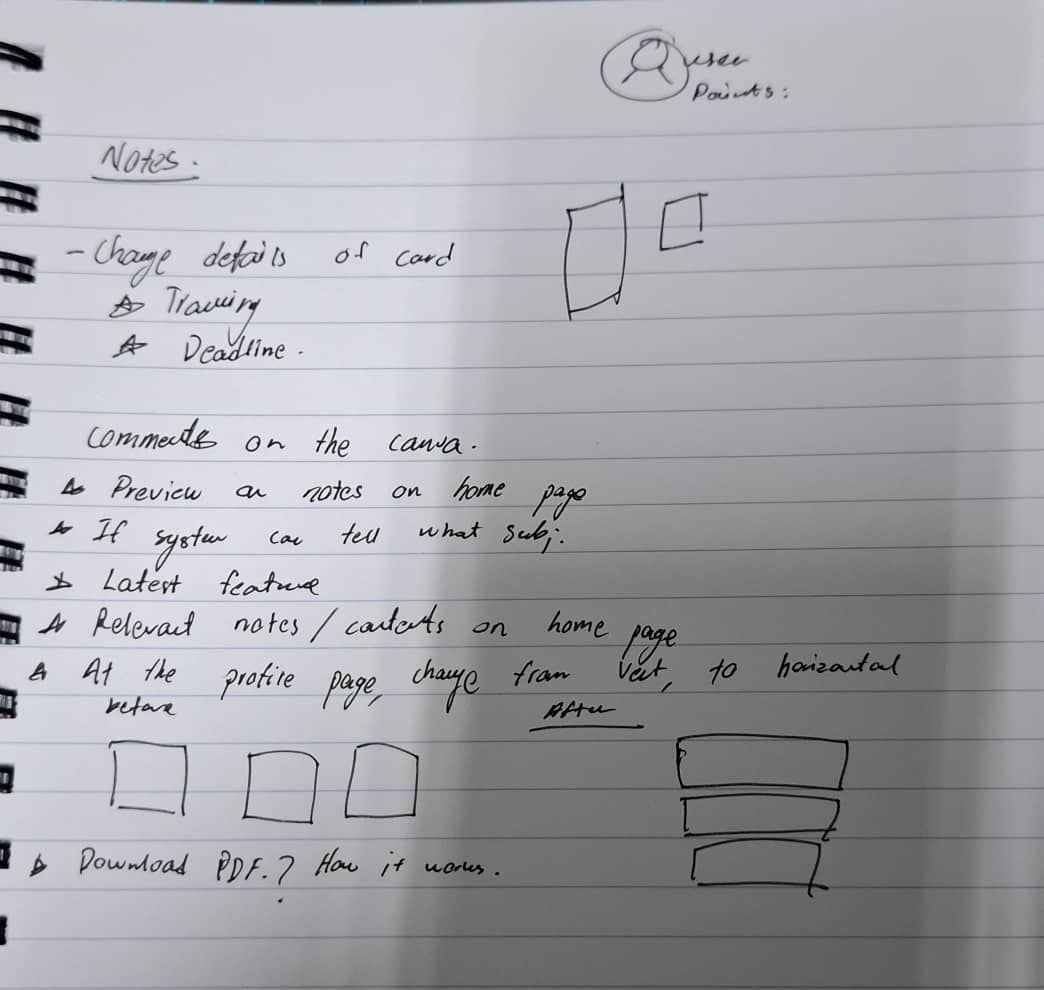 user
Points:
Notes.
- Change details of card
Training
Deadline.
Comments on the canva.
Preview on notes on home page
If system can tell what subj.
Latest feature
Relevant notes / contents on home page
At the profile page, change from Vert, to horizontal
before After
Download PDF.? How it works.